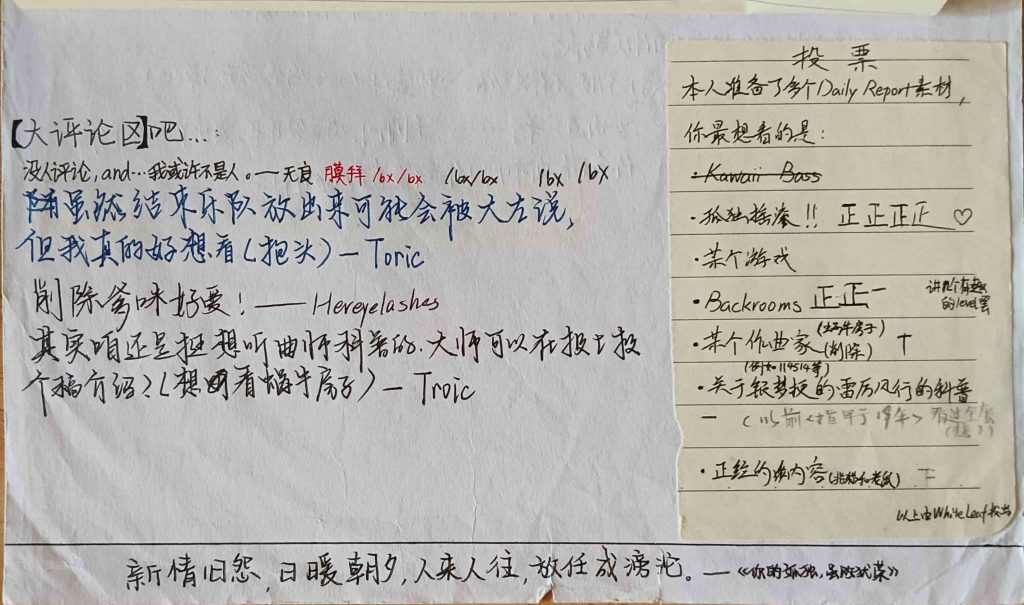 【大评论区】吧…:
没人评论, and…我或许不是人。—天良 膜拜 /bx/bx /bx/bx /bx /bx
虽然结束乐队放出来可能会被大左说,
但我真的好想看(抱头)— Toric
削除爹咪好爱! —— Hereyelashes
其实咱还是挺想听曲师科普的.大师可以在投上投
个稿介绍?(想看蜗牛房子)— Troic
投票
本人准备了多个Daily Report素材,
你最想看的是:
·Kawaii Bass
·孤独摇滚!! 正正正正 ♡
·某个游戏
·Backrooms 正正一 讲几个有趣的level罢
·某个作曲家(蜗牛房子)(削除)
(例如114514等)
·关于银梦梗的雷厉风行的科普
一 (以前<指早于19年>看过全套
·正经的内容(指猫和老鼠)
以上由WhiteLeaf给出
新情旧怨,日暖朝夕,人来人往,放任成滂沱。—《你的孤独,虽败犹荣》